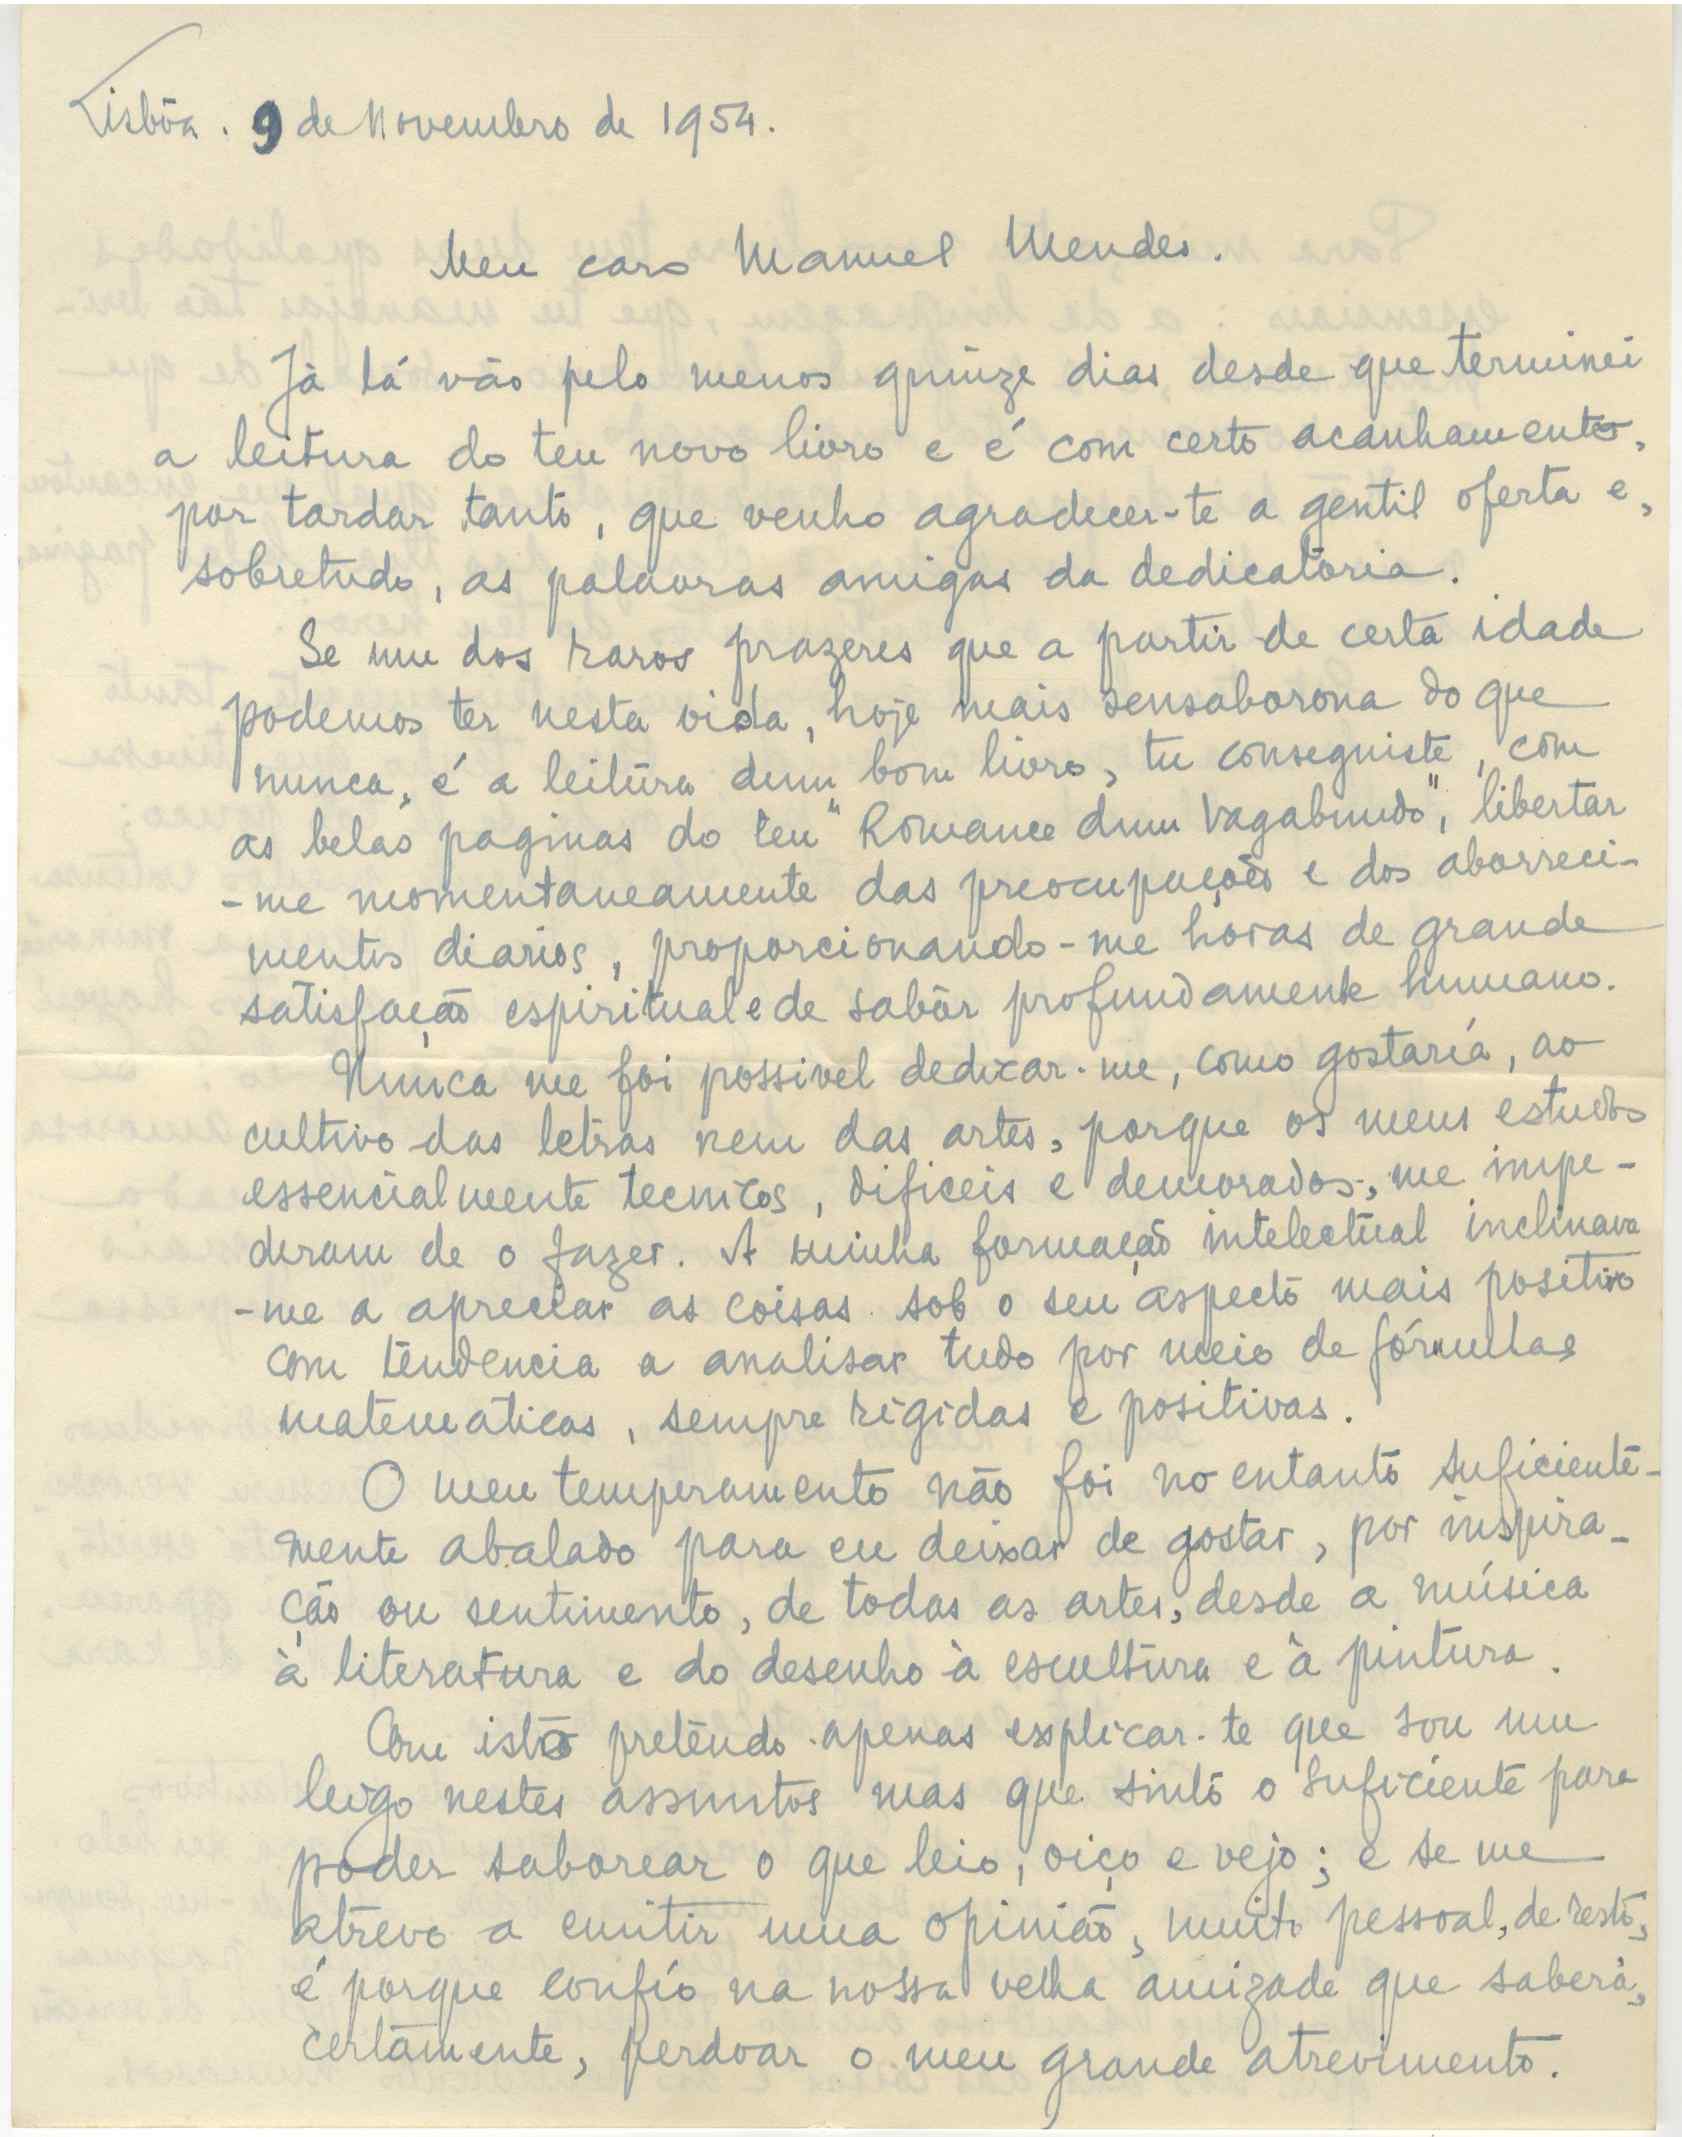 Lisbôa. 9 de Novembro de 1954.
Meu caro Manuel Mendes.
Já lá vão pelo menos quinze dias, desde que terminei
a leitura do teu novo livro e é com certo acanhamento,
por tardar tanto, que venho agradecer-te a gentil oferta e,
sobretudo, as palavras amigas da dedicatória.
Se um dos raros prazeres que a partir de certa idade
podemos ter nesta vida, hoje mais sensaborona do que
nunca, é a leitura dum bom livro, tu conseguiste, com
as belas paginas do teu "Romance dum Vagabundo", libertar
-me momentaneamente das preocupações e dos aborreci-
mentos diarios, proporcionando-me horas de grande
satisfação espiritual e de sabôr profundamente humano.
Nunca me foi possivel dedicar-me, como gostaria, ao
cultivo das letras nem das artes, porque os meus estudos
essencialmente tecnicos, dificeis e demorados, me impe-
diram de o fazer. A minha formação intelectual inclinava
-me a apreciar as coisas sob o seu aspecto mais positivo
com tendencia a analisar tudo por meio de fórmulas
matematicas, sempre rigidas e positivas.
O meu temperamento não foi no entanto suficiente-
mente abalado para eu deixar de gostar, por inspira-
ção ou sentimento, de todas as artes, desde a música
à literatura e do desenho à escultura e à pintura.
Com isto pretendo apenas explicar-te que sou um
leigo nestes assuntos mas que sinto o suficiente para
poder saborear o que leio, oiço e vejo; e se me
atrevo a emitir uma opinião, muito pessoal, de resto,
é porque confio na nossa velha amizade que saberá,
certamente, perdoar o meu grande atrevimento.